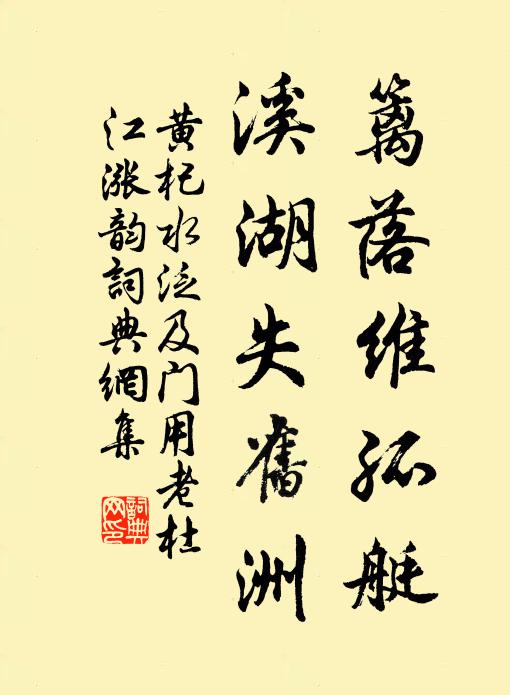 篱落維孤艇
溪湖失舊洲
黄杞水泛及门用老杜
江漲韵詞典網集
詞典網印